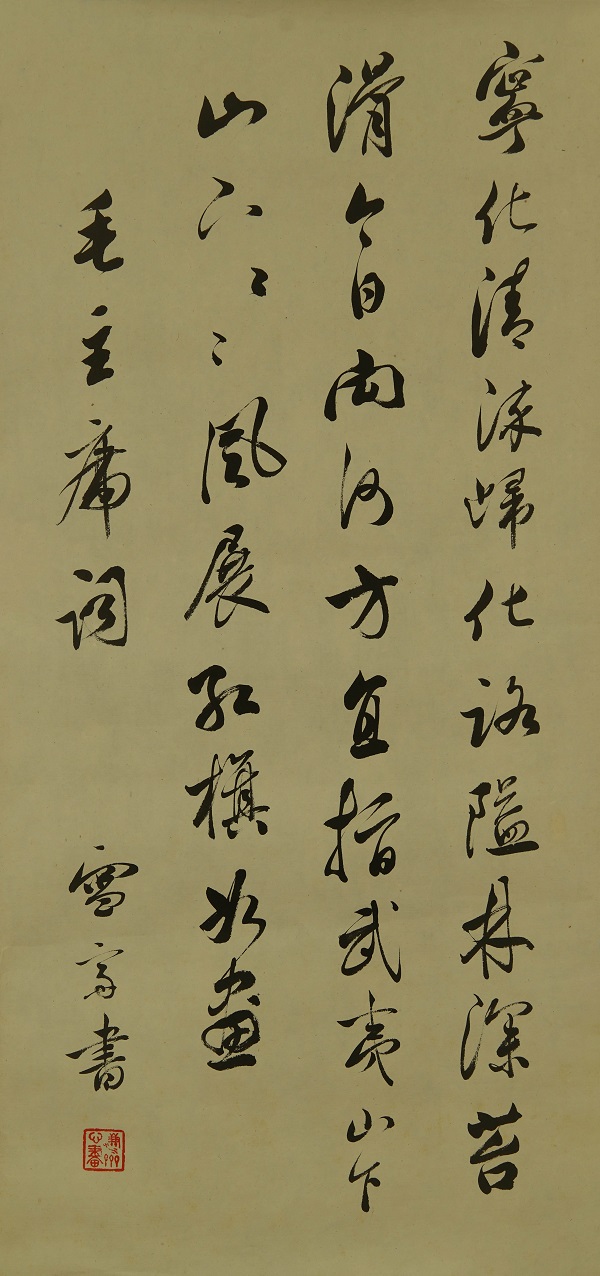 寧化清流歸化路隘林深苔
滑今日向何方直指武夷山下
山下〻〻風展紅旗如畫
毛主席詞
雪 書